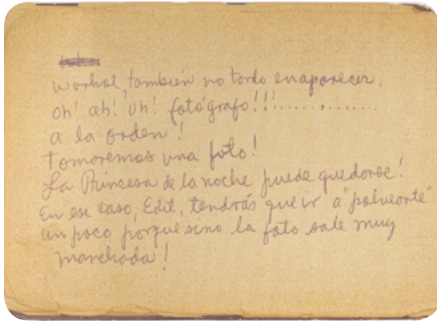 Warhol, también no tardo en aparecer.
Oh! ah! Uh! fotógrafo!!!..............
a la orden!
tomaremos una foto!
La Princesa de la noche puede quedarse!
En ese caso, Edit, tendrás que ir a "polvearte"
un poco porque sino la foto sale muy
manchada!